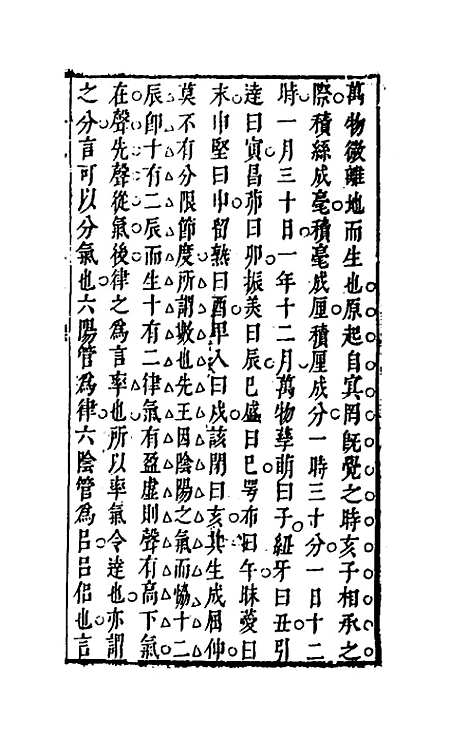 萬物微離地而生也原起自㝠罔旣覺之時亥子相承之
際積絲成毫積毫成厘積厘成分一時三十分一日十二
時一月三十日一年十二月萬物孳萌曰子紐牙曰丑引
達曰寅昌茆曰卯振美曰辰巳盛曰巳咢布曰午昧薆曰
未申堅曰申留熟曰酉畢入曰戌該閉曰亥其生成屈伸
莫不有分限節度所謂數也先王因陰陽之氣而恊十二
辰卽十有二辰而生十有二律氣有盈虛則聲有高下氣
在聲先聲從氣後律之爲言率也所以率氣令達也亦謂
之分言可以分氣也六陽管爲律六陰管爲呂呂侶也言